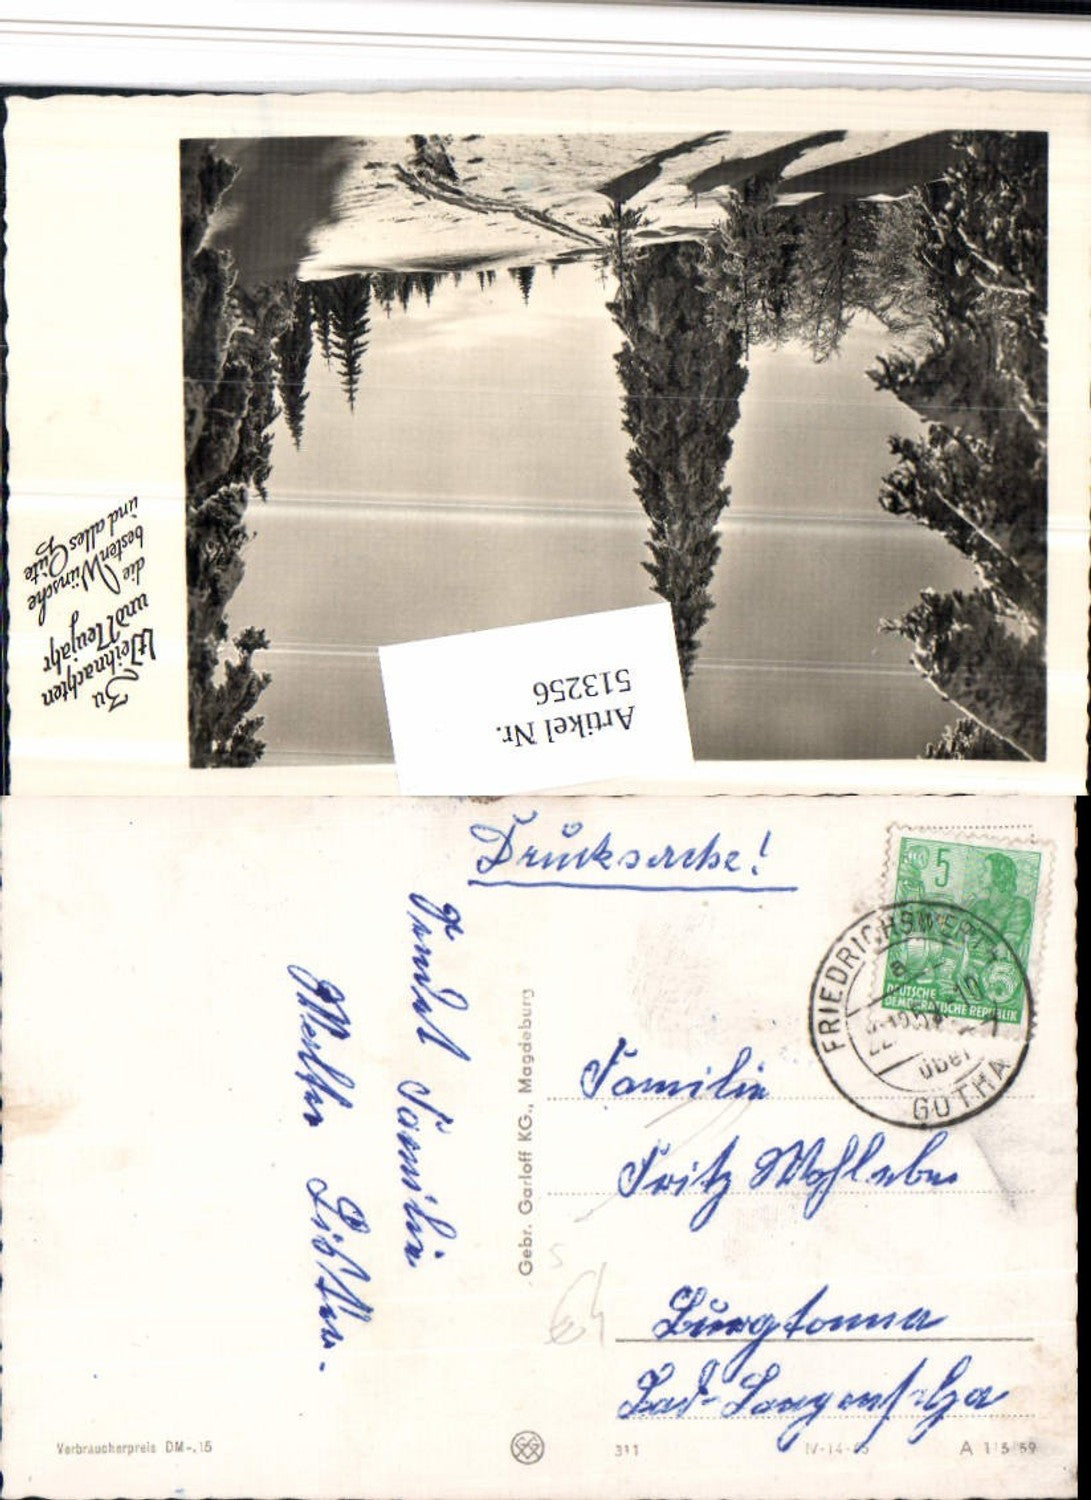 Zu
Weihnachten
und Neujahr
die
besten Wünsche
und alles Gute
Artikel Nr.
513256
Drucksache!
5
DEUTSCHE
DEMOKRATISCHE REPUBLIK
FRIEDRICHSWERTH
über
GOTHA
Familie
Gebr. Garloff KG., Magdeburg
Familie
Fritz Wohlleben
Burgtonna
Bad-Langensalza
Verbraucherpreis DM -.15
311
IV-14-45
A 115/59